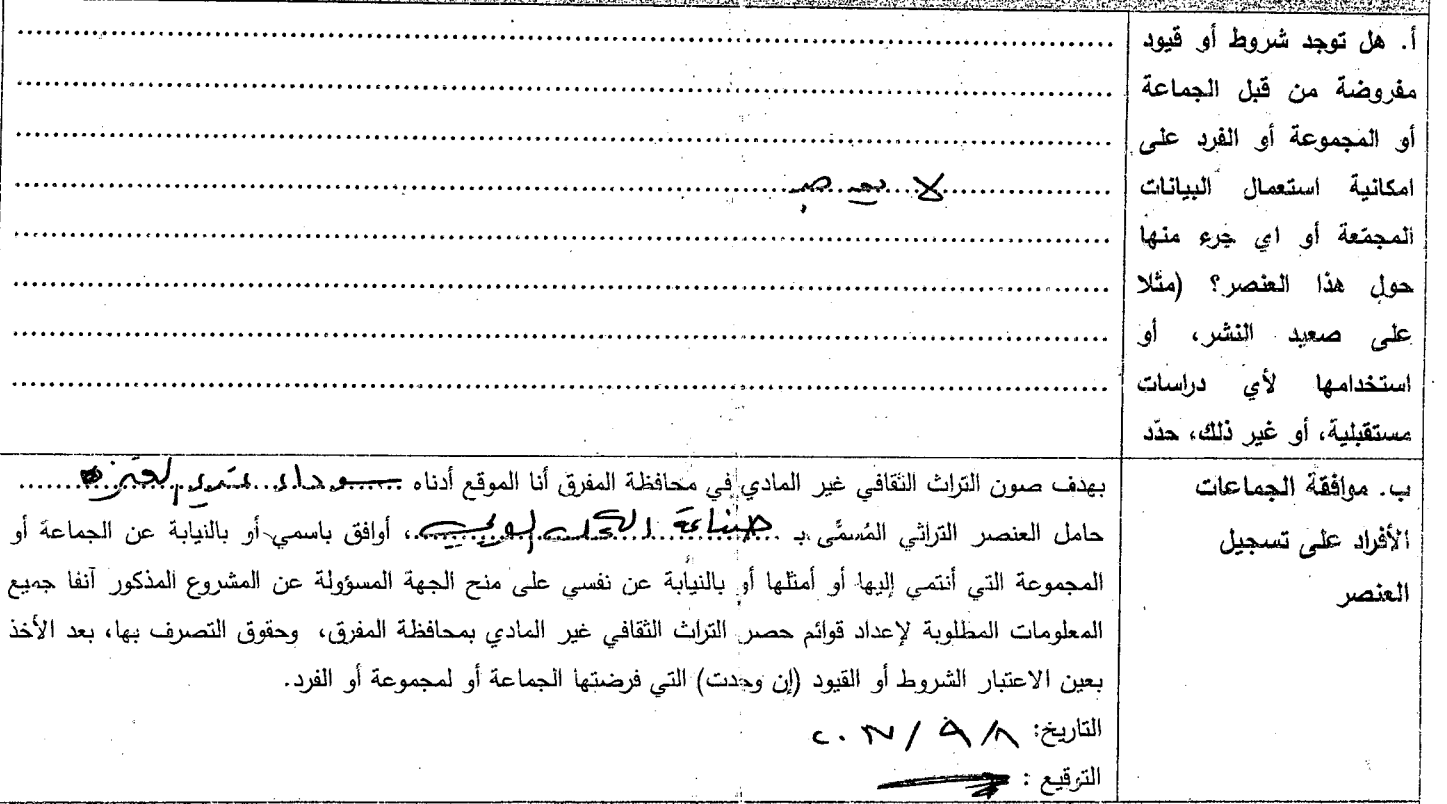 أ. هل توجد شروط أو قيود
مفروضة من قبل الجماعة
أو المجموعة أو الفرد على
امكانية استعمال البيانات
المجمّعة أو اي جزء منها
حول هذا العنصر؟ (مثلا
على صعيد النشر، أو
استخدامها لأي دراسات
مستقبلية، أو غير ذلك، حدّد
لا يوجد
ب. موافقة الجماعات
الأفراد على تسجيل
العنصر
بهدف صون التراث الثقافي غير المادي في محافظة المفرق أنا الموقع أدناه
حامل العنصر التراثي المُسمَّى بـ صناعة الكحل العربي، أوافق باسمي أو بالنيابة عن الجماعة أو
المجموعة التي أنتمي إليها أو أمثلها أو بالنيابة عن نفسي على منح الجهة المسؤولة عن المشروع المذكور آنفا جميع
المعلومات المطلوبة لإعداد قوائم حصر التراث الثقافي غير المادي بمحافظة المفرق، وحقوق التصرف بها، بعد الأخذ
بعين الاعتبار الشروط أو القيود (إن وجدت) التي فرضتها الجماعة أو لمجموعة أو الفرد.
التاريخ: ٨/ ٩ /
التوقيع :